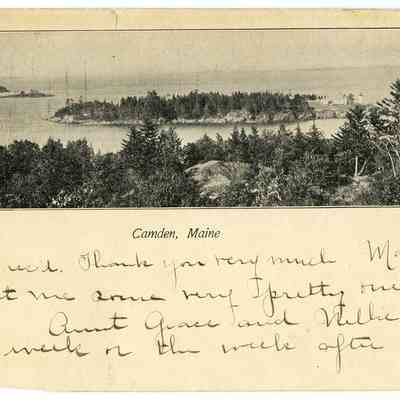 Camden, Maine
rec'd. Thank you very much Ma
t me some very pretty one
Aunt Grace and Nellie
week or the week after